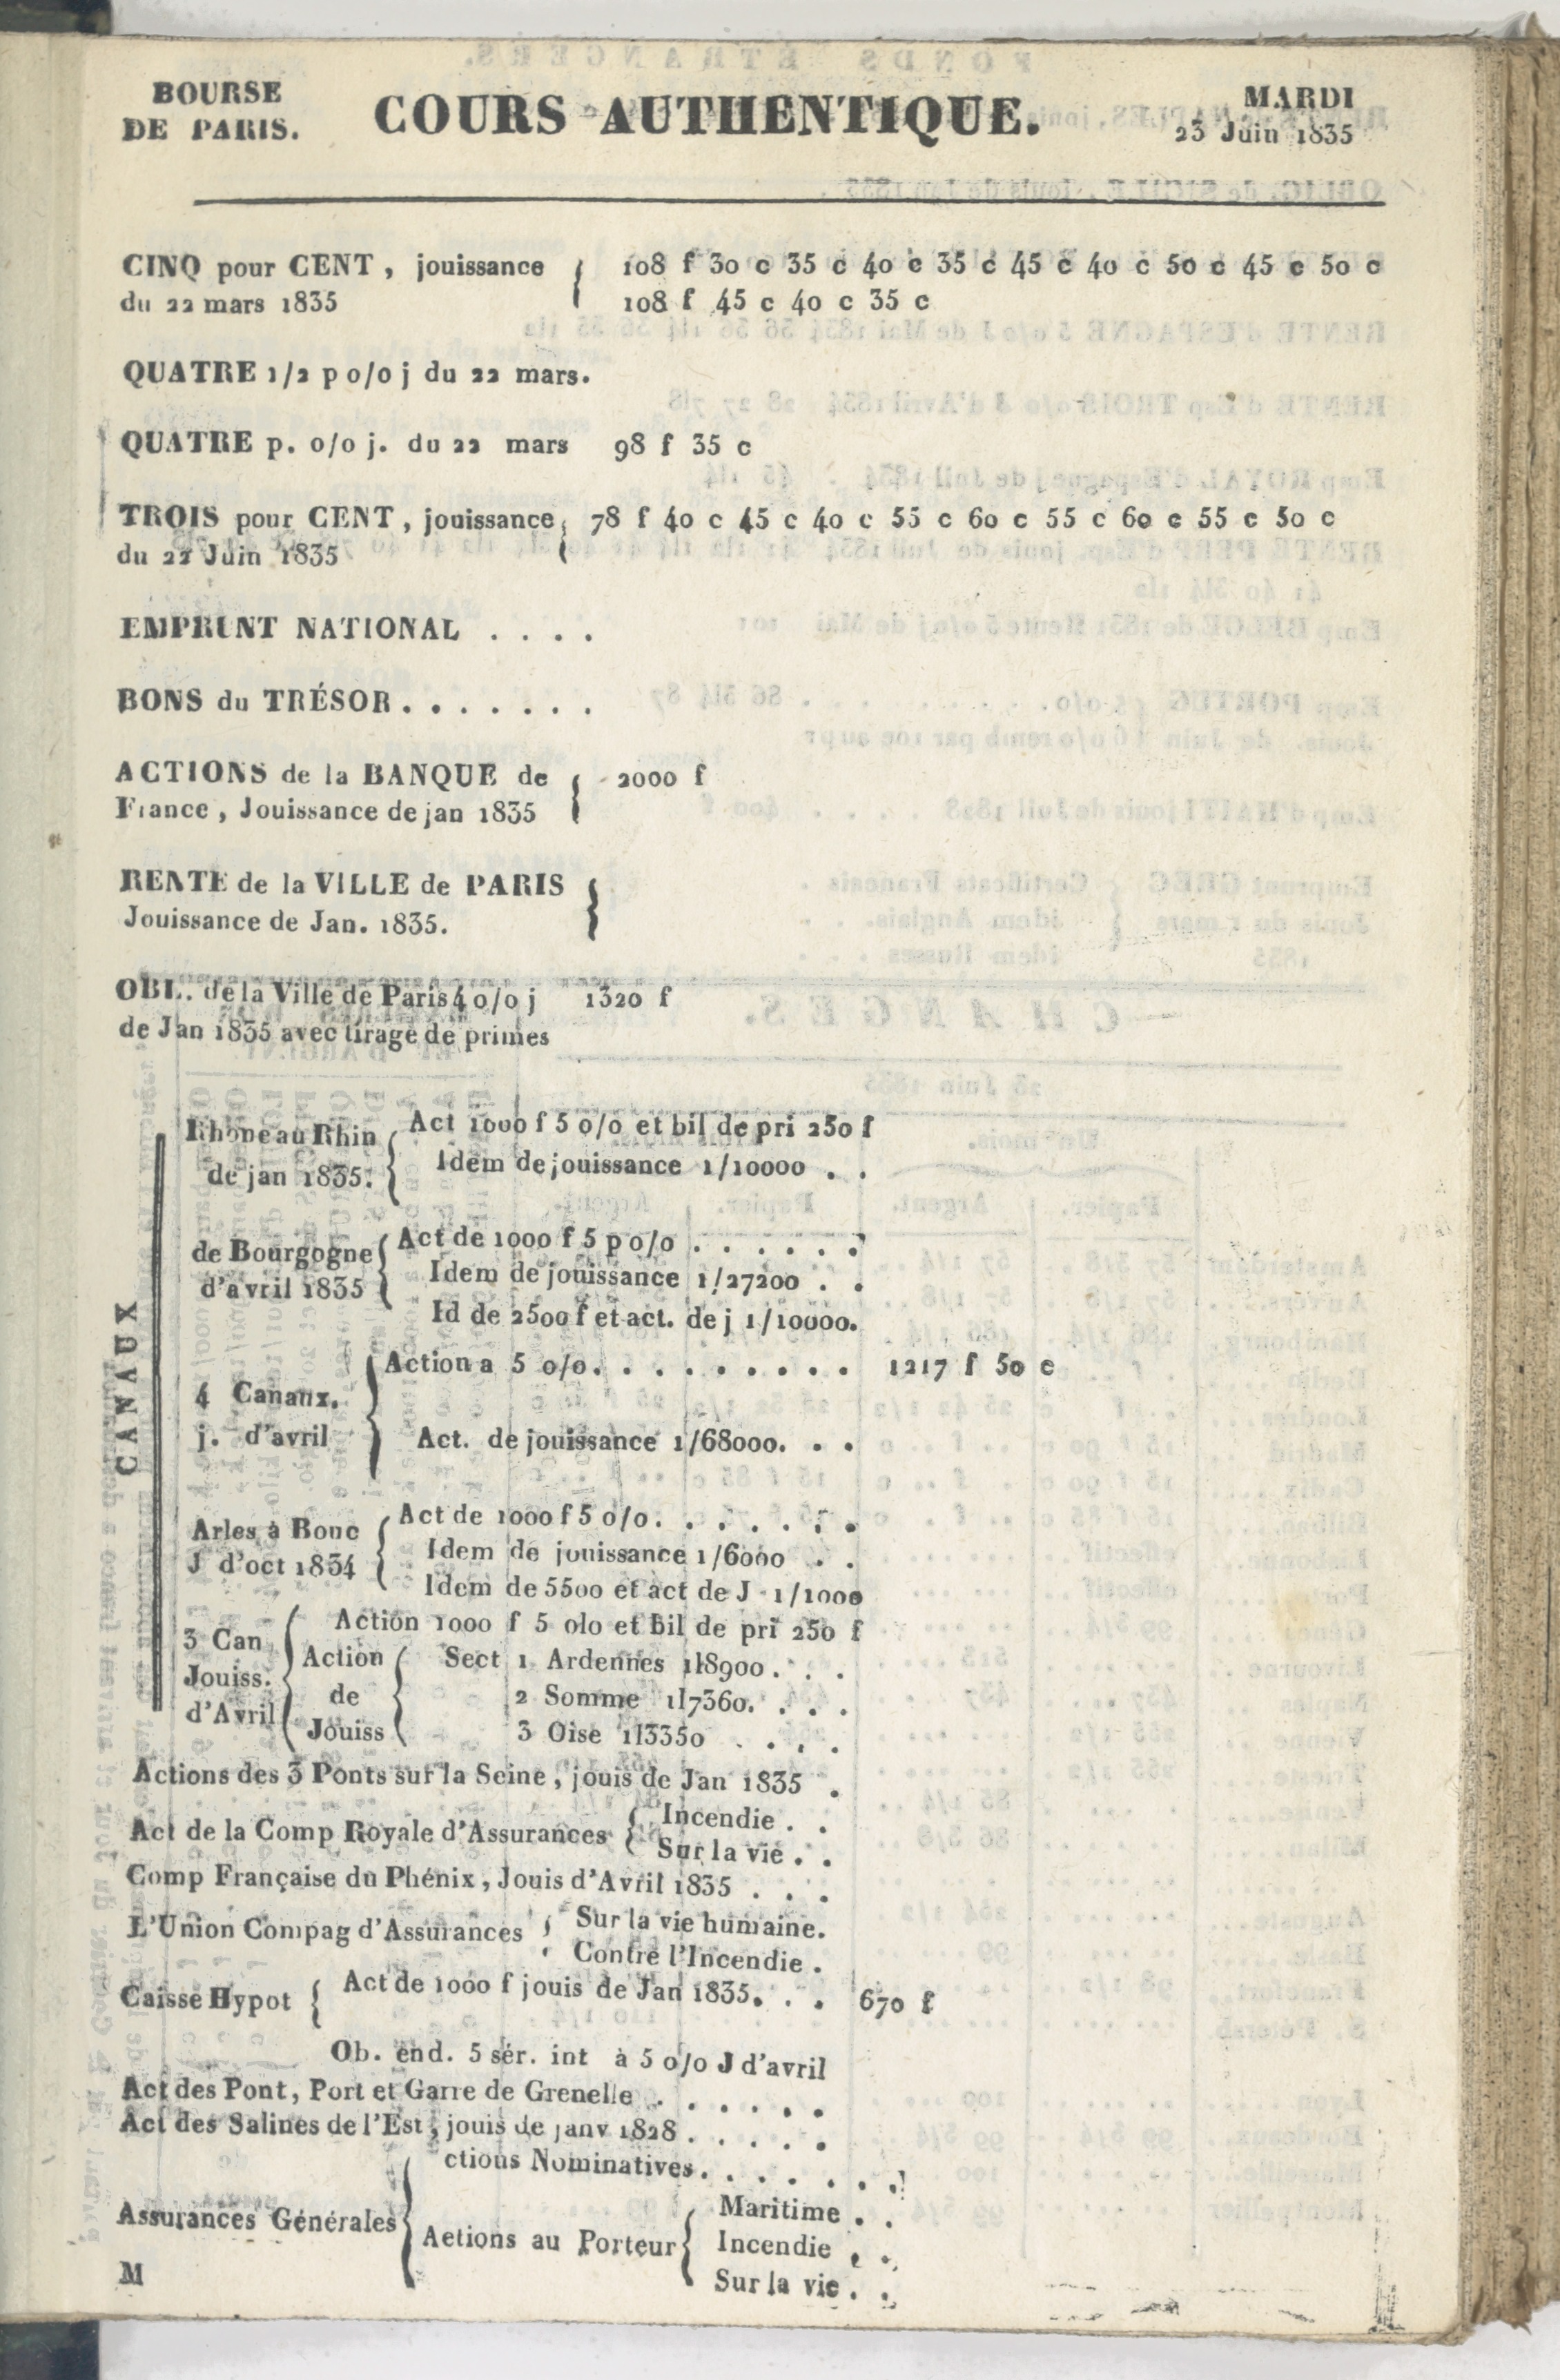 BOURSE
DE PARIS.
COURS AUTHENTIQUE.
MARDI
23 Juin 1835
CINQ pour CENT , jouissance { 108 f 30 c 35 c 40 c 35 c 45 c 40 c 50 c 45 c 50 c
du 22 mars 1835 108 f 45 c 40 c 35 c
QUATRE 1/2 p o/o j du 22 mars.
QUATRE p. o/o j. du 22 mars 98 f 35 c
TROIS pour CENT , jouissance { 78 f 40 c 45 c 40 c 55 c 60 c 55 c 60 c 55 c 50 c
du 22 Juin 1835
EMPRUNT NATIONAL . . . .
BONS du TRÉSOR . . . . . . .
ACTIONS de la BANQUE de { 2000 f
France , Jouissance de jan 1835
RENTE de la VILLE de PARIS {
Jouissance de Jan. 1835.
OBL. de la Ville de Paris 4 o/o j 1320 f
de Jan 1835 avec tirage de primes
CANAUX
Rhône au Rhin { Act 1000 f 5 o/o et bil de pri 250 f
de jan 1835. Idem de jouissance 1/10000 . .
de Bourgogne { Act de 1000 f 5 p o/o . . . . . .
d'avril 1835 Idem de jouissance 1/27200 . .
Id de 2500 f et act. de j 1/10000.
4 Canaux. { Action a 5 o/o. . . . . . . . . 1217 f 50 c
j. d'avril Act. de jouissance 1/68000. . .
Arles à Bouc { Act de 1000 f 5 o/o. . . . . . .
J d'oct 1834 Idem de jouissance 1/6000 . .
Idem de 5500 et act de J 1/1000
3 Can { Action 1000 f 5 olo et bil de pri 250 f
Jouiss. Action { Sect 1 Ardennes 1l8900 . . .
d'Avril de 2 Somme 1l7360. . . .
Jouiss 3 Oise 1l3350 . . . .
Actions des 3 Ponts sur la Seine , jouis de Jan 1835 .
Act de la Comp Royale d'Assurances { Incendie . .
Sur la vie . .
Comp Française du Phénix , Jouis d'Avril 1835 . . .
L'Union Compag d'Assurances { Sur la vie humaine.
Contre l'Incendie .
Caisse Hypot { Act de 1000 f jouis de Jan 1835. . . 670 f
Ob. end. 5 sér. int à 5 o/o J d'avril
Act des Pont, Port et Garre de Grenelle . . . . . .
Act des Salines de l'Est , jouis de janv 1828 . . . . .
ctions Nominatives. . . . . . .
Assurances Générales { Actions au Porteur { Maritime . .
Incendie . .
Sur la vie . .
M